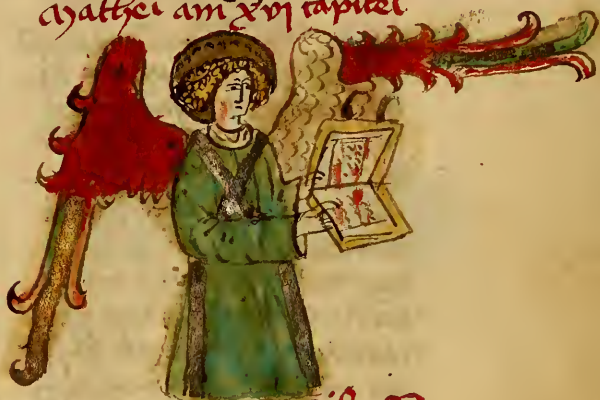 Mathei am xvi capitel